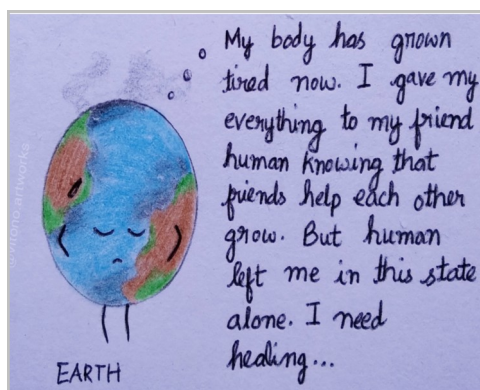 My body has grown
tired now. I gave my
everything to my friend
human knowing that
friends help each other
grow. But human
left me in this state
alone. I need
healing...
EARTH